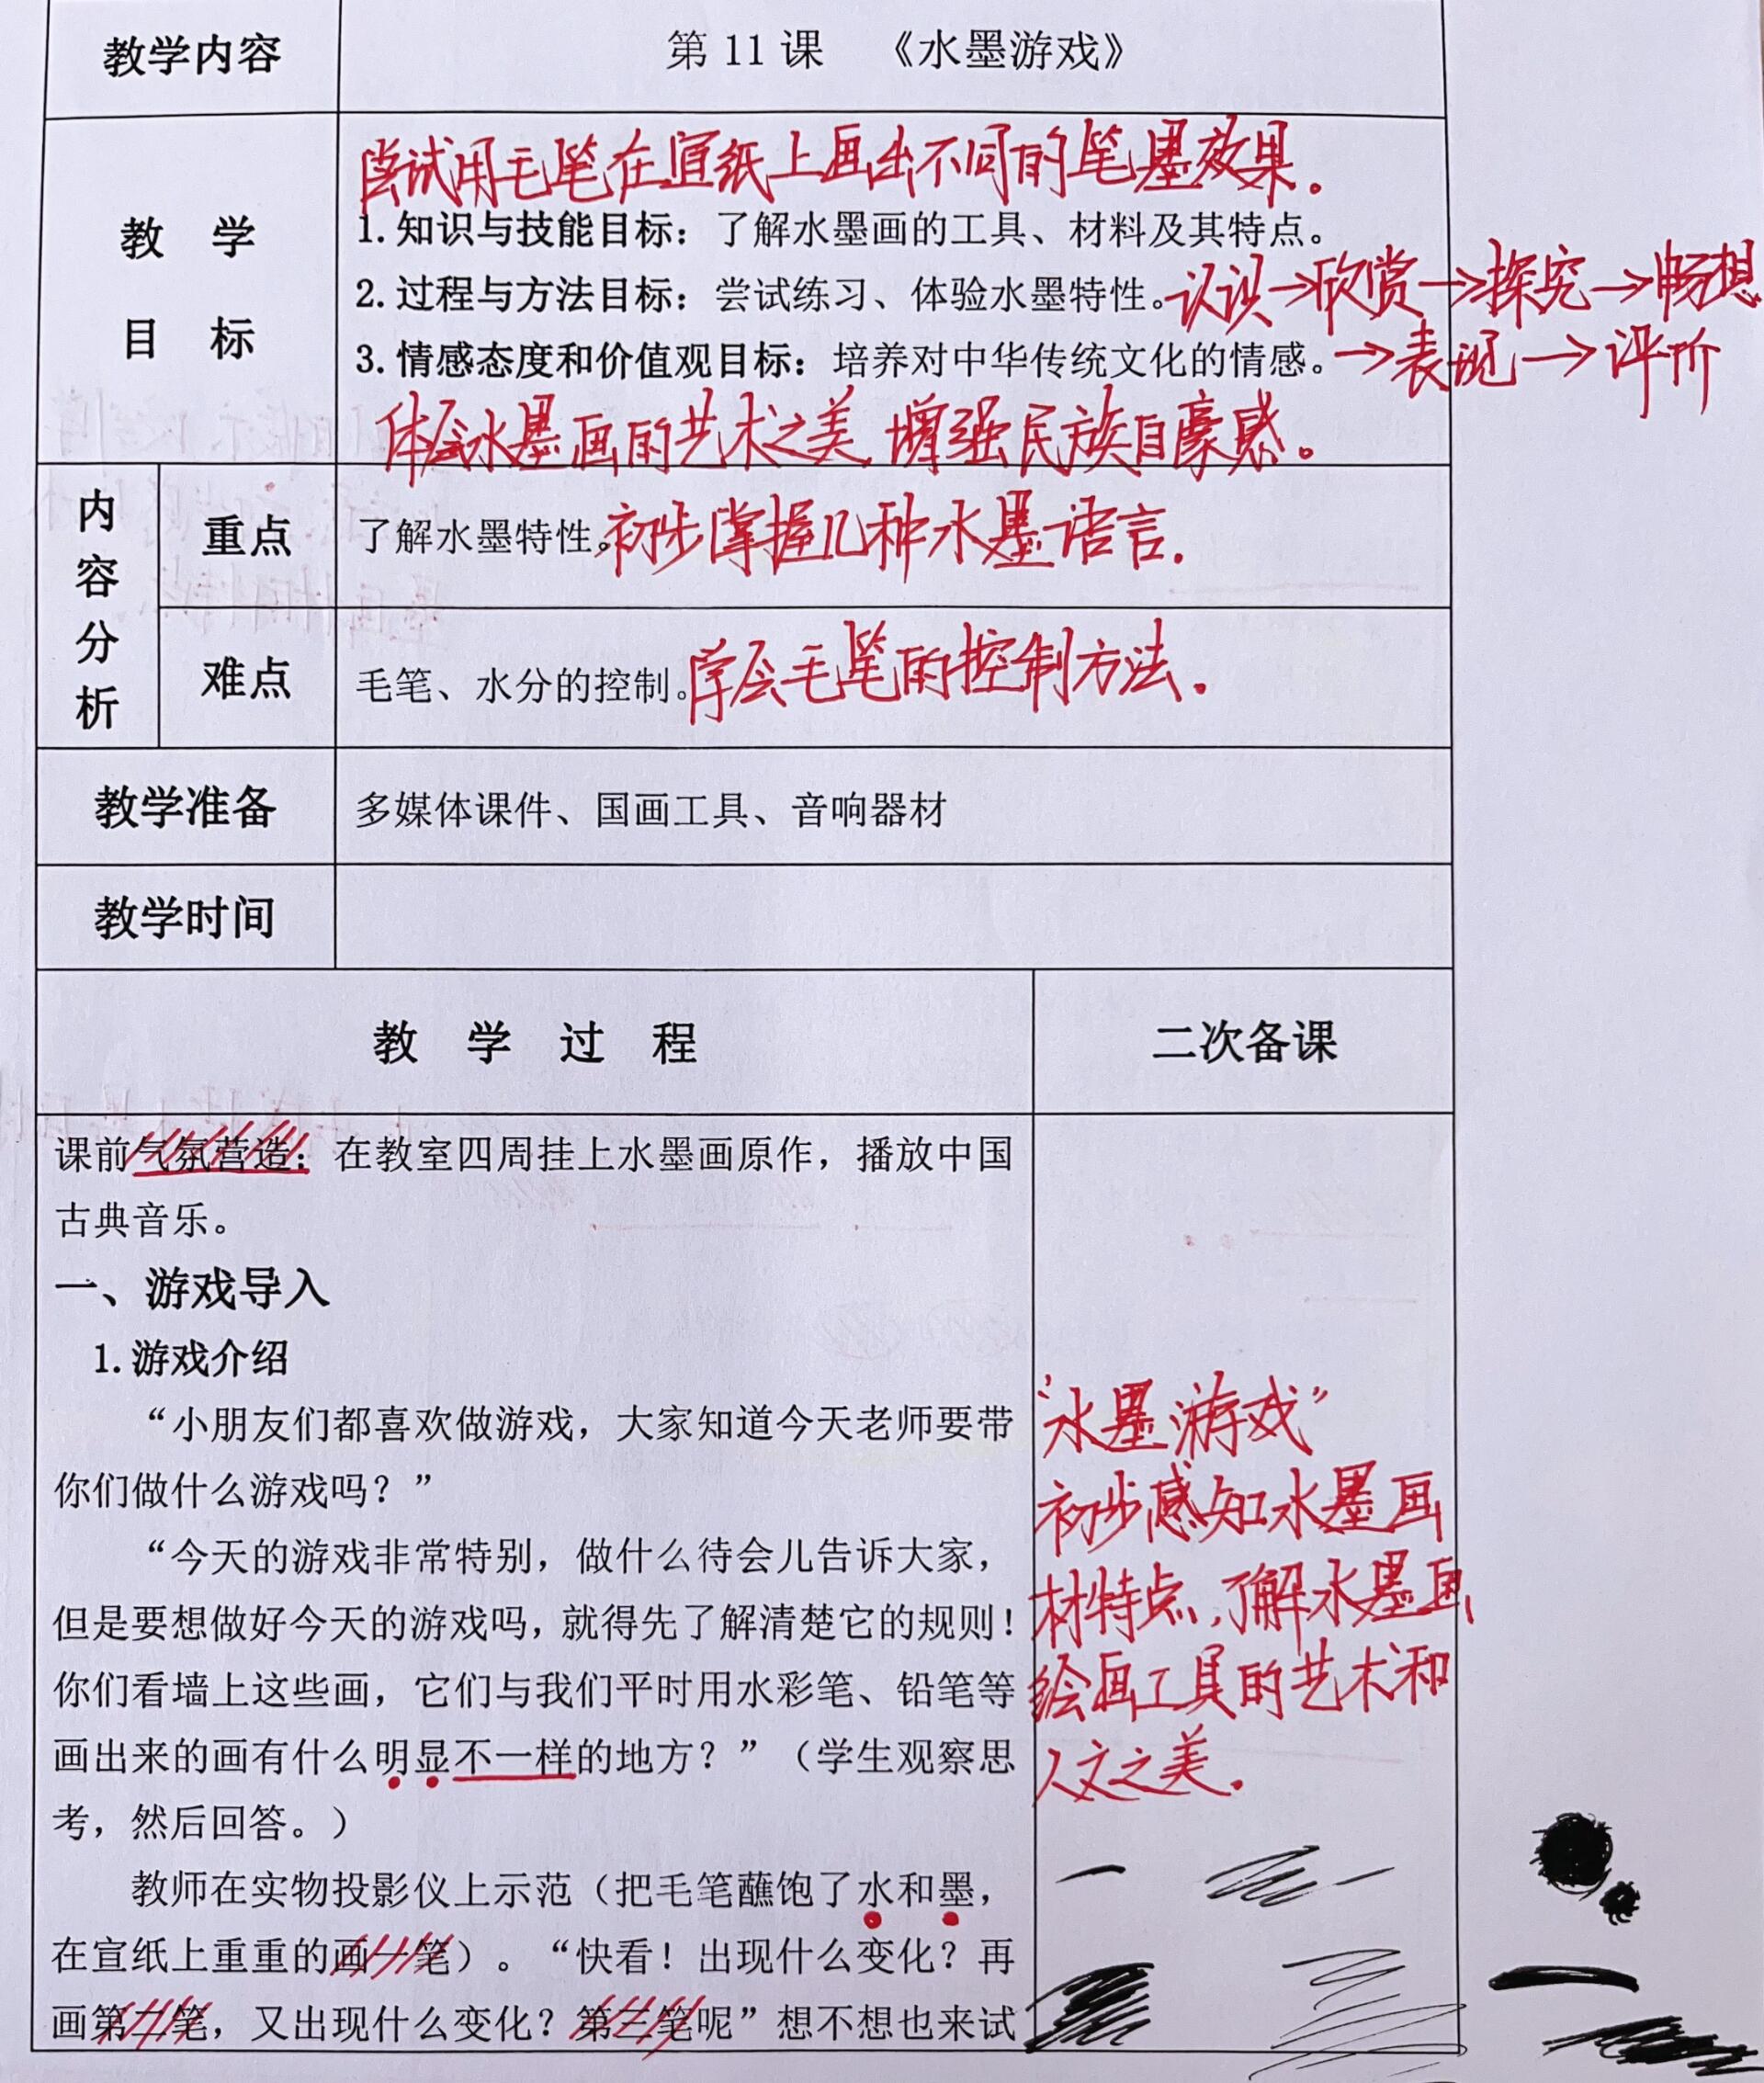 教学内容 第11课 《水墨游戏》
尝试用毛笔在宣纸上画出不同的笔墨效果。
教学目标
1.知识与技能目标：了解水墨画的工具、材料及其特点。
2.过程与方法目标：尝试练习、体验水墨特性。认识→欣赏→探究→畅想
3.情感态度和价值观目标：培养对中华传统文化的情感。→表现→评价
体会水墨画的艺术之美,增强民族自豪感。
内容分析
重点 了解水墨特性。初步掌握几种水墨语言.
难点 毛笔、水分的控制。学会毛笔的控制方法.
教学准备 多媒体课件、国画工具、音响器材
教学时间
教 学 过 程 二次备课
课前气氛营造：在教室四周挂上水墨画原作，播放中国
古典音乐。
一、游戏导入
1.游戏介绍
“小朋友们都喜欢做游戏，大家知道今天老师要带
你们做什么游戏吗？”
“今天的游戏非常特别，做什么待会儿告诉大家，
但是要想做好今天的游戏吗，就得先了解清楚它的规则！
你们看墙上这些画，它们与我们平时用水彩笔、铅笔等
画出来的画有什么明显不一样的地方？”（学生观察思
考，然后回答。）
教师在实物投影仪上示范（把毛笔蘸饱了水和墨，
在宣纸上重重的画一笔）。“快看！出现什么变化？再
画第二笔，又出现什么变化？第三笔呢”想不想也来试
“水墨游戏”
初步感知水墨画
材特点,了解水墨画
绘画工具的艺术和
人文之美.